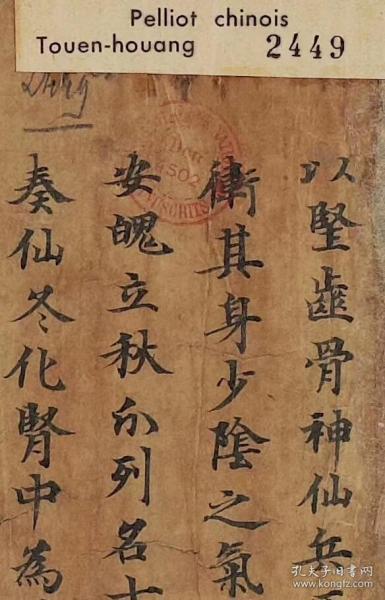 Pelliot chinois
Touen-houang 2449
以堅齒骨神仙兵
衛其身少陰之氣
安魄立秋尒列名
奏仙冬化腎中為
孔夫子旧书网
www.kongfz.com